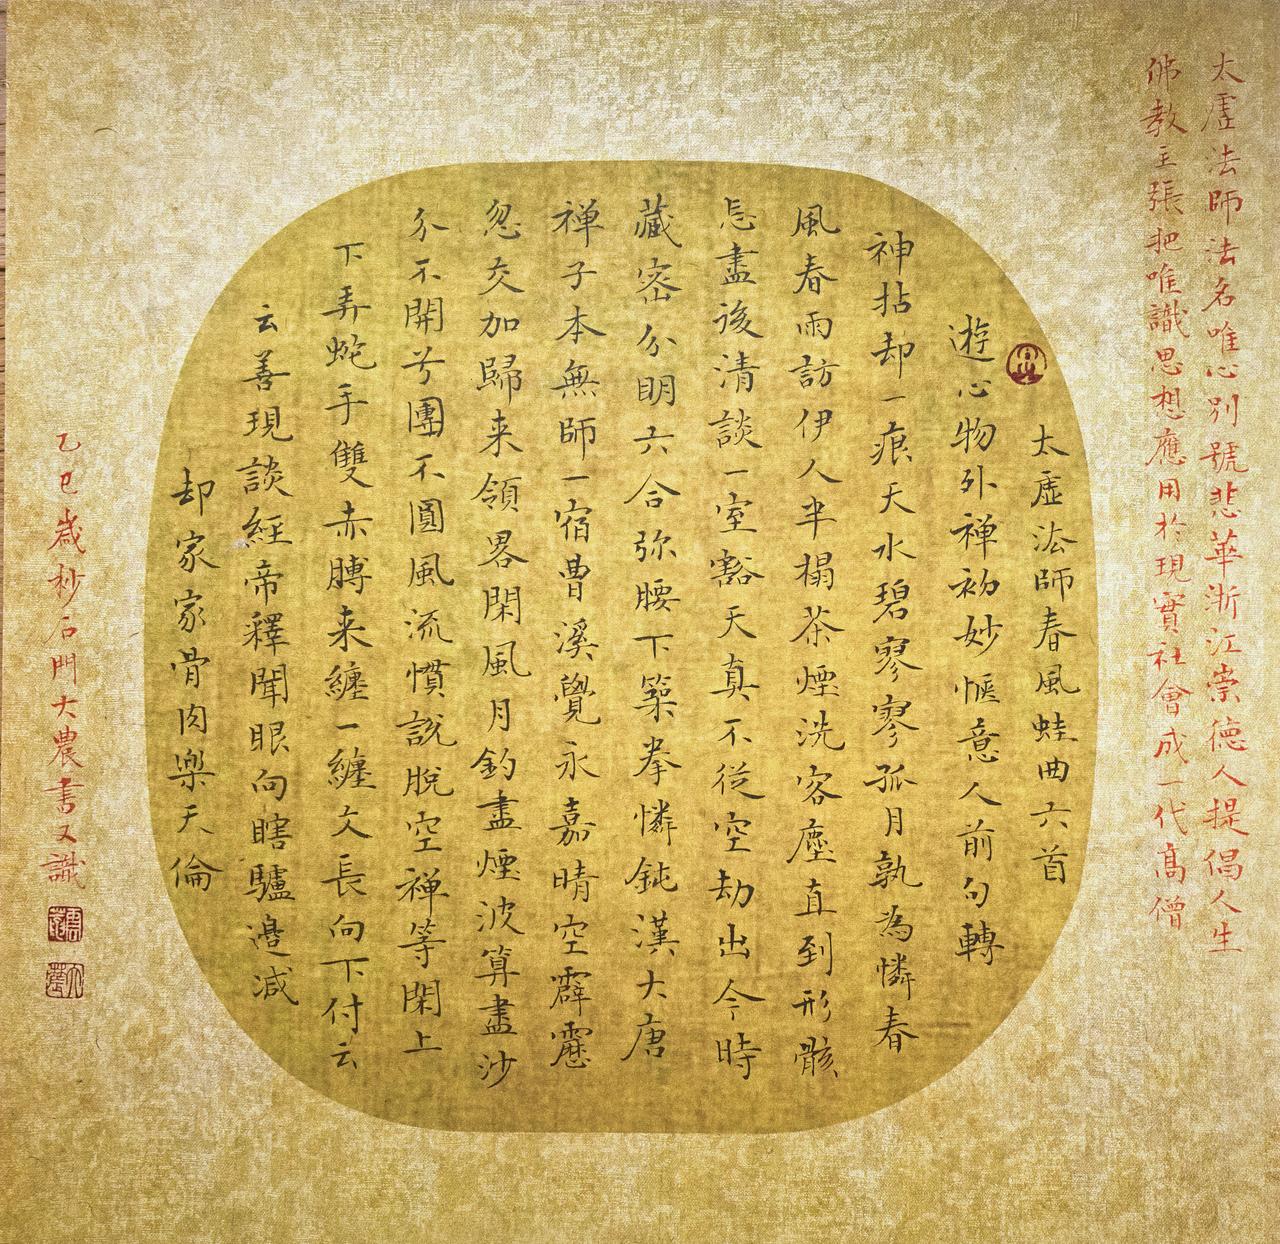 太虛法師法名唯心別號悲華浙江崇德人提倡人生
佛教主張把唯識思想應用於現實社會成一代高僧
太虛法師春風蛙曲六首
遊心物外禅初妙愜意人前句轉
神拈却一痕天水碧寥寥孤月孰為憐春
風春雨訪伊人半榻茶煙洗容塵直到形骸
忘盡後清談一室豁天真不從空劫出今時
藏密分明六合弥腰下築拳憐鈍漢大唐
禅子本無師一宿曹溪覺永嘉晴空霹靂
忽交加歸来領畧閑風月釣盡煙波算盡沙
分不開兮團不圓風流慣說脫空禅等閑上
下弄蛇手雙赤膊来纏一纏文長向下付云
云善現談經帝釋聞眼向瞎驢邊滅
却家家骨肉樂天倫
乙巳歲杪石門大農書又識